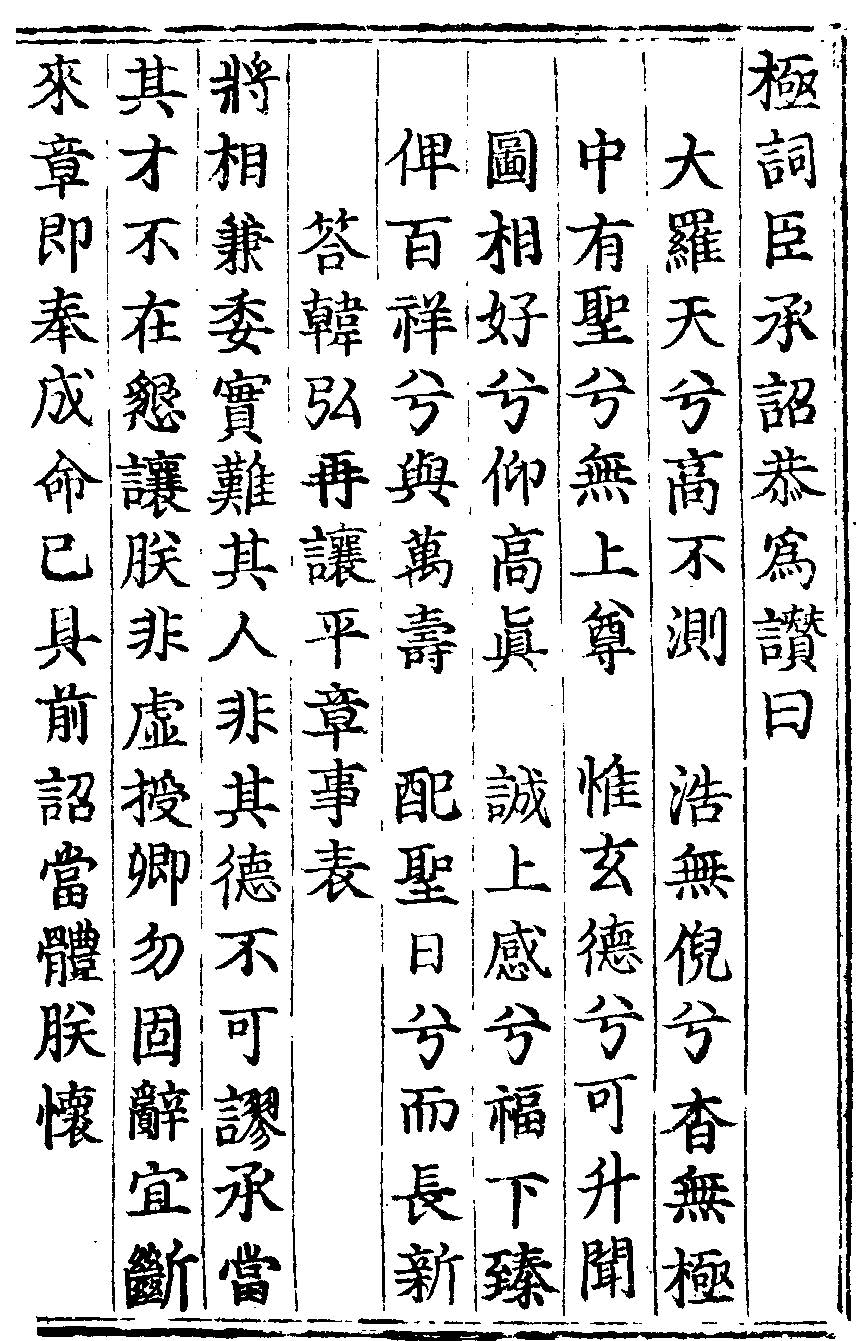 極詞臣承詔恭爲讚曰
大羅天兮高不測　浩無倪兮杳無極
中有聖兮無上尊　惟玄德兮可升聞
圖相好兮仰高眞　誠上感兮福下臻
俾百祥兮與萬壽　配聖日兮而長新
答韓弘再讓平章事表
將相兼委實難其人非其德不可謬承當
其才不在懇讓朕非虛授卿勿固辭宜斷
來章即奉成命已具前詔當體朕懷